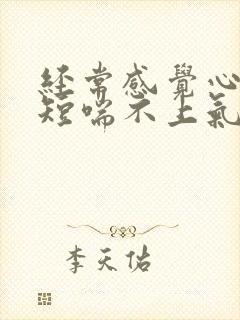 經常感覺心
短喘不上氣
李天佑